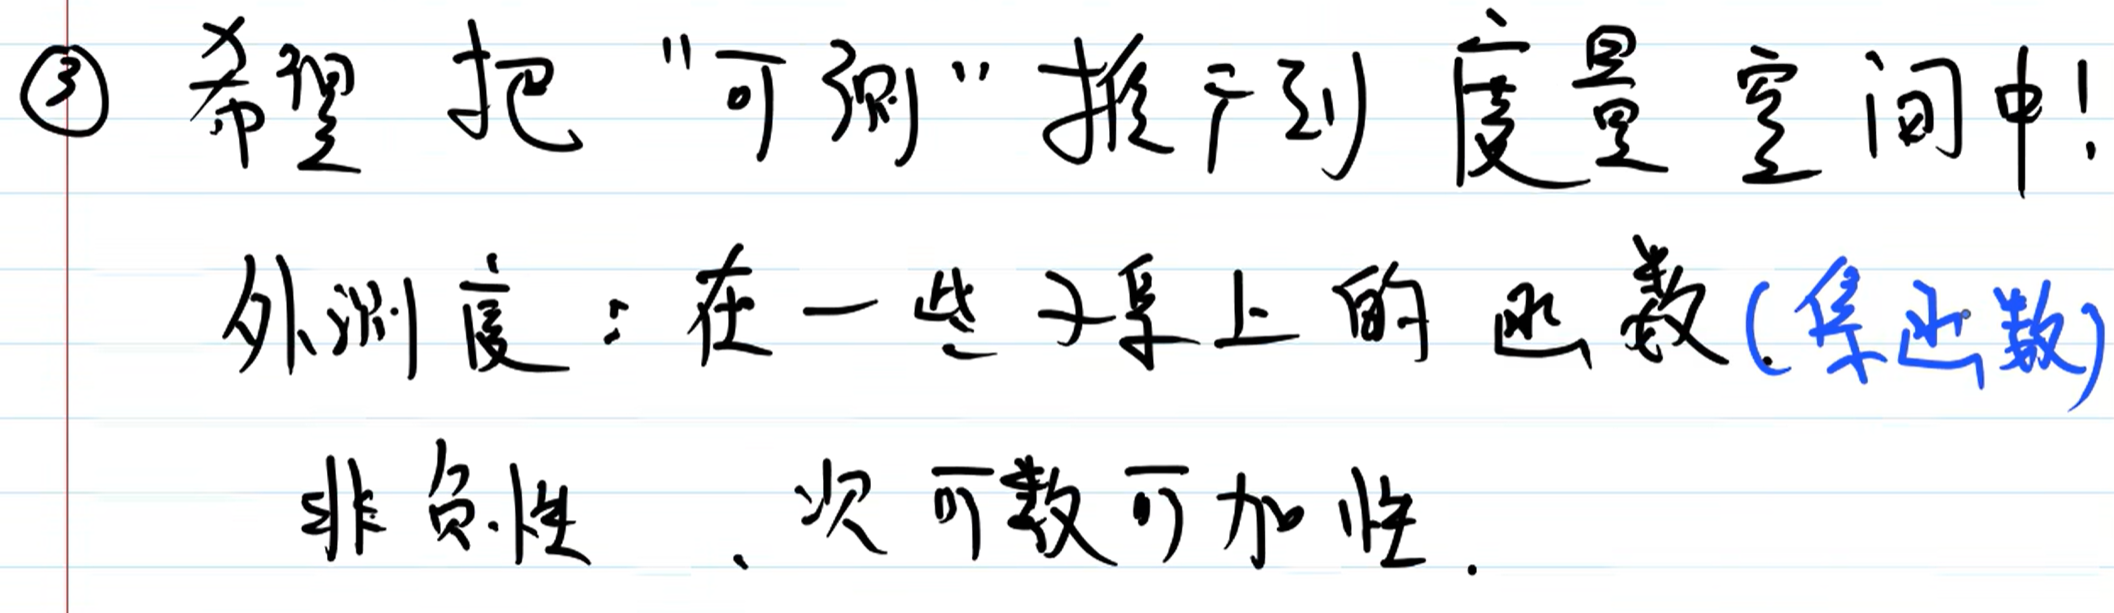 ③ 希望把"可测"推广到度量空间中!
外测度:在一些子集上的函数(集函数)
非负性、次可数可加性.